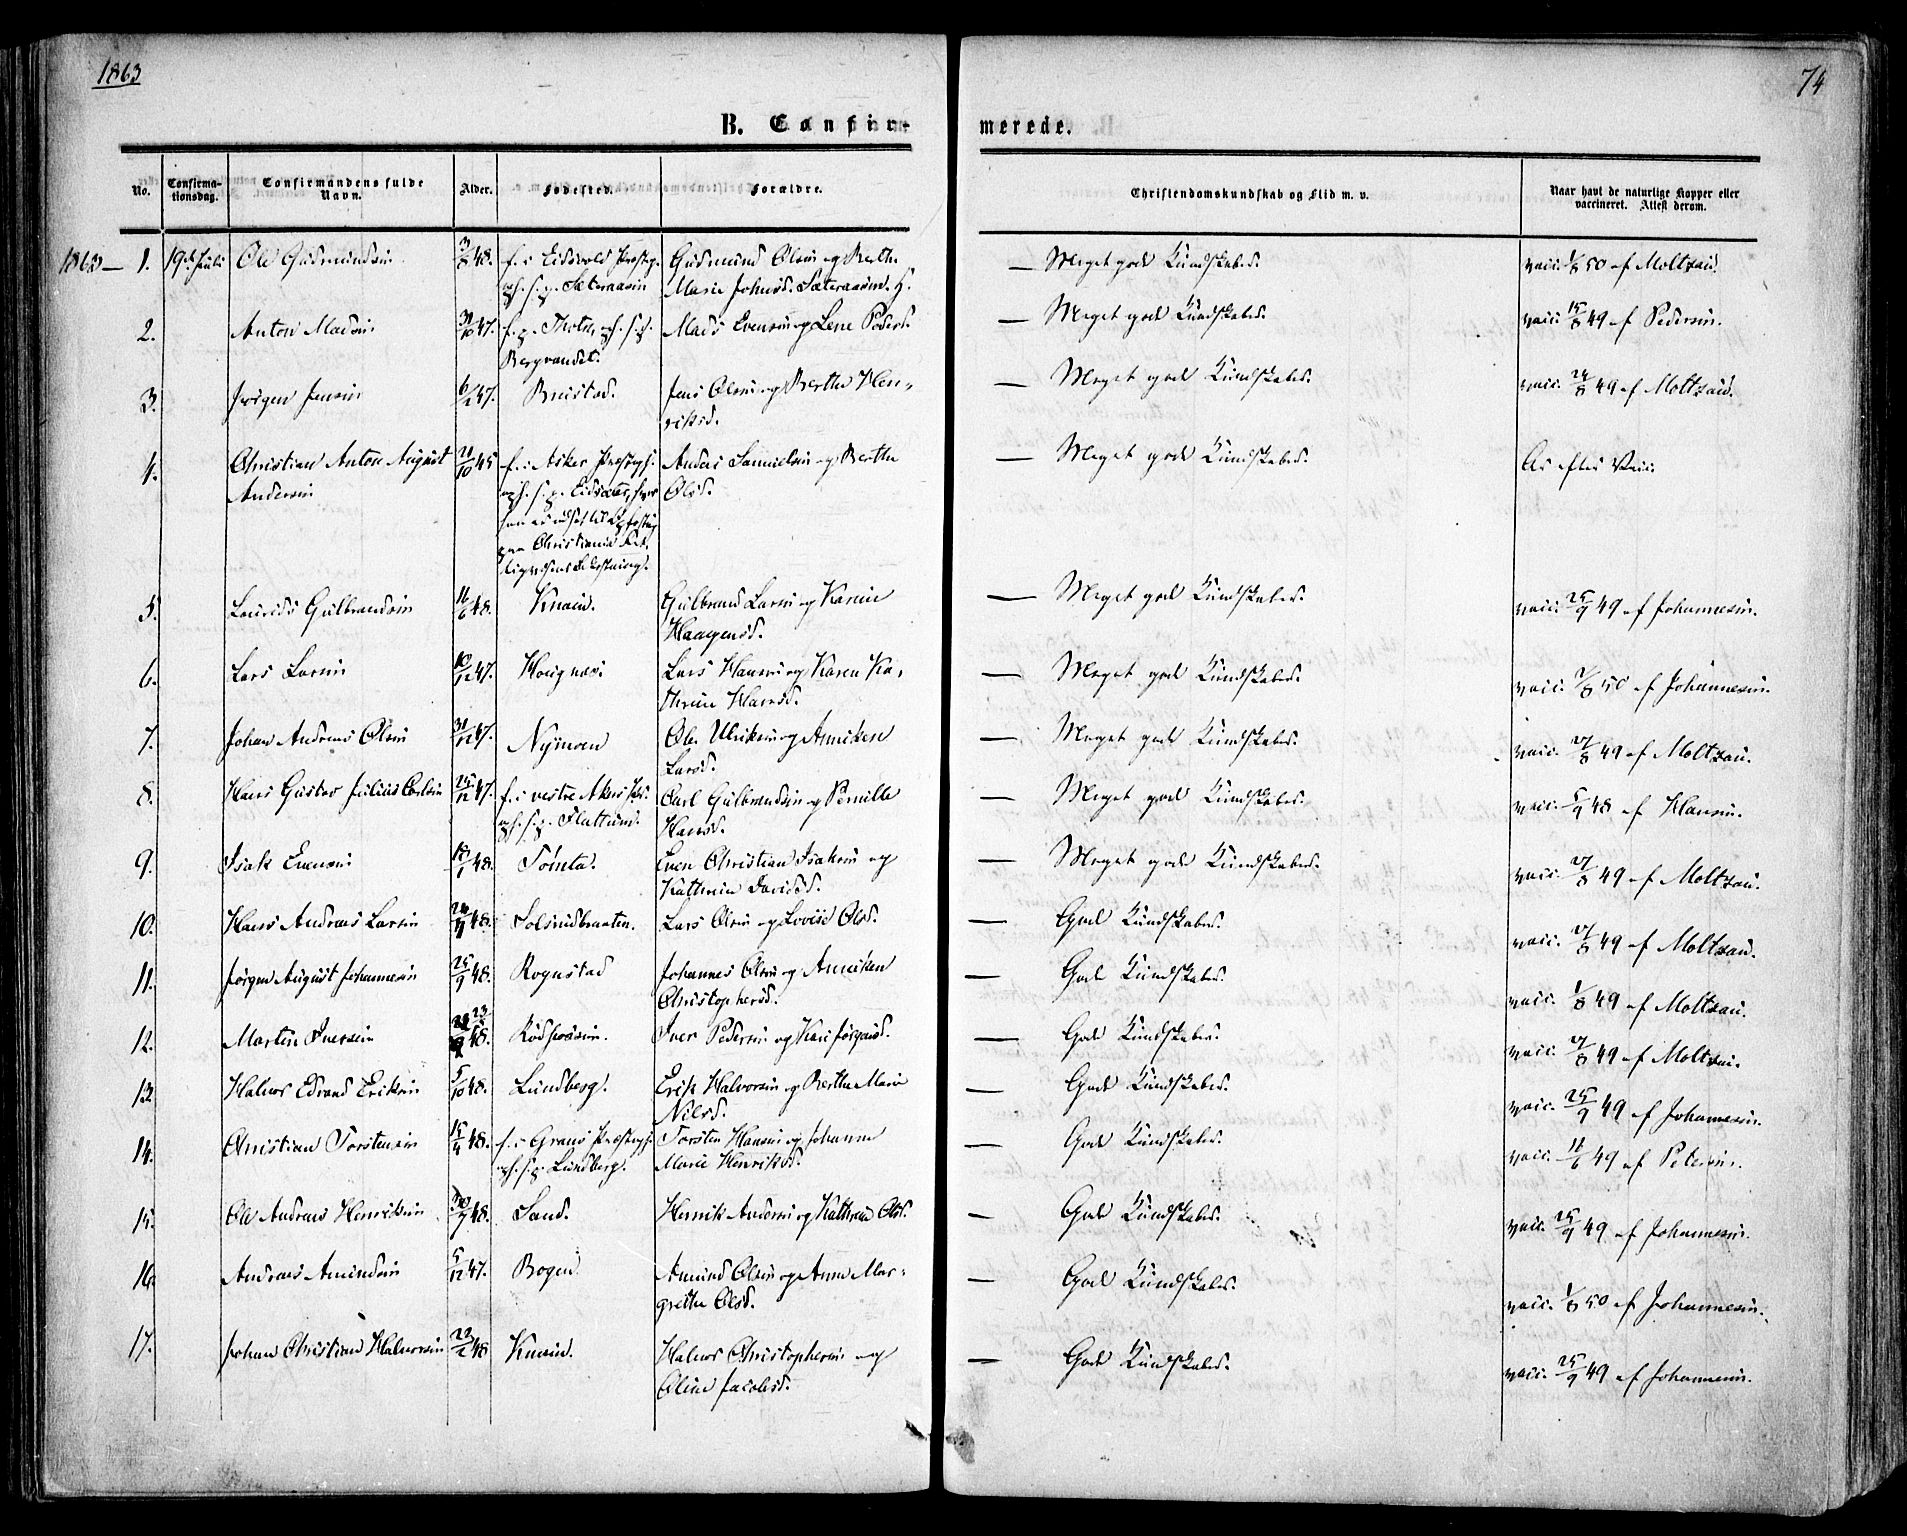 1863
74
B. Confir-
merede.
No.
Confirma-
tionsdag.
Confirmandens fulde
Navn.
Alder.
Fødested.
Forældre.
Christendomskundskab og Flid m. v.
Naar havt de naturlige Kopper eller
vaccineret. Attest derom.
1863 — 1. 19de Juli Ole Gudmundsen 48. f. i Eidsvold Præstg. Gudmund Olsen og Berthe — Meget god Kundskabs. vacc. 50 af Moltzau.
Marie Johnsd. Sæteraasen
2. Anton Madsen 47. f. p. Mads Evensen og Lene Peders. — Meget god Kundskabs. vacc. 15/8 49 af Pedersen.
3. Jørgen Jensen 6/12 47. Bruistad. Jens Olsen og Berthe Hen- — Meget god Kundskabs. vacc. 24/8 49 af Moltzau.
riksd.
4. Christian Anton August 21/10 45 f. i Asker Præstgj. Anders Samuelsen og Berthe — Meget god Kundskabs. Ar efter Vacc.
Andersen Olsd.
paa Christiania
5. Laurids Gulbrandsen 16/6 48. Knain. Gulbrand Larsen og Karen — Meget god Kundskabs. vacc. 25/9 49 af Johannesen.
Haagensd.
6. Lars Larsen 10/12 47. Lars Hansen og Karen Ka- — Meget god Kundskabs. vacc. 7/8 50 af Johannesen.
thrine Hansd.
7. Johan Andreas Olsen 31/12 47. Nymoen Ole Ulriksen og Anniken — Meget god Kundskabs. vacc. 27/8 49 af Moltzau.
Larsd.
8. Hans Gustav Julius Carlsen 25/12 47. f. i vestre Akers Carl Gulbrandsen og Pernille — Meget god Kundskabs. vacc. 5/9 48 af Hansen.
Hansd.
9. Isak Evensen 18/1 48. Tömte. Even Christian Isaksen og — Meget god Kundskabs. vacc. 27/8 49 af Moltzau.
Kathrine Davidsd.
10. Hans Andreas Larsen 48. Solsrudbraaten. Lars Olsen og Lovise Olsd. — God Kundskabs. vacc. 27/8 49 af Moltzau.
11. Jørgen August Johannesen 25/9 48. Rognstad Johannes Olsen og Anniken — God Kundskabs. vacc. 1/8 49 af Moltzau.
Christophersd.
12. Martin Iversen 48. Iver Pedersen og Kari Jørgensd. — God Kundskabs. vacc. 27/8 49 af Moltzau.
13. Halvor Edvard Eriksen 5/10 48. Lundberg. Erik Halvorsen og Berthe Marie — God Kundskabs. vacc. 25/9 49 af Johannesen.
Nilsd.
14. Christian Torstensen 15/4 48. f. i Grans Præstgj. Torsten Hansen og Johanne — God Kundskabs. vacc. 11/6 49 af Petersen.
Lundberg. Marie Henriksd.
15. Ole Andreas Henriksen 30/7 48. Sand. Henrik Andersen og Kathrine Olsd. — God Kundskabs. vacc. 25/9 49 af Johannesen.
16. Andreas Amundsen 5/12 47. Bogen Amund Olsen og Anne Mar- — God Kundskabs. vacc. 1/8 50 af Johannesen.
grethe Olsd.
17. Johan Christian Halvorsen 22/2 48 Knain. Halvor Christophersen og — God Kundskabs. vacc. 25/9 49 af Johannesen.
Oline Jacobsd.